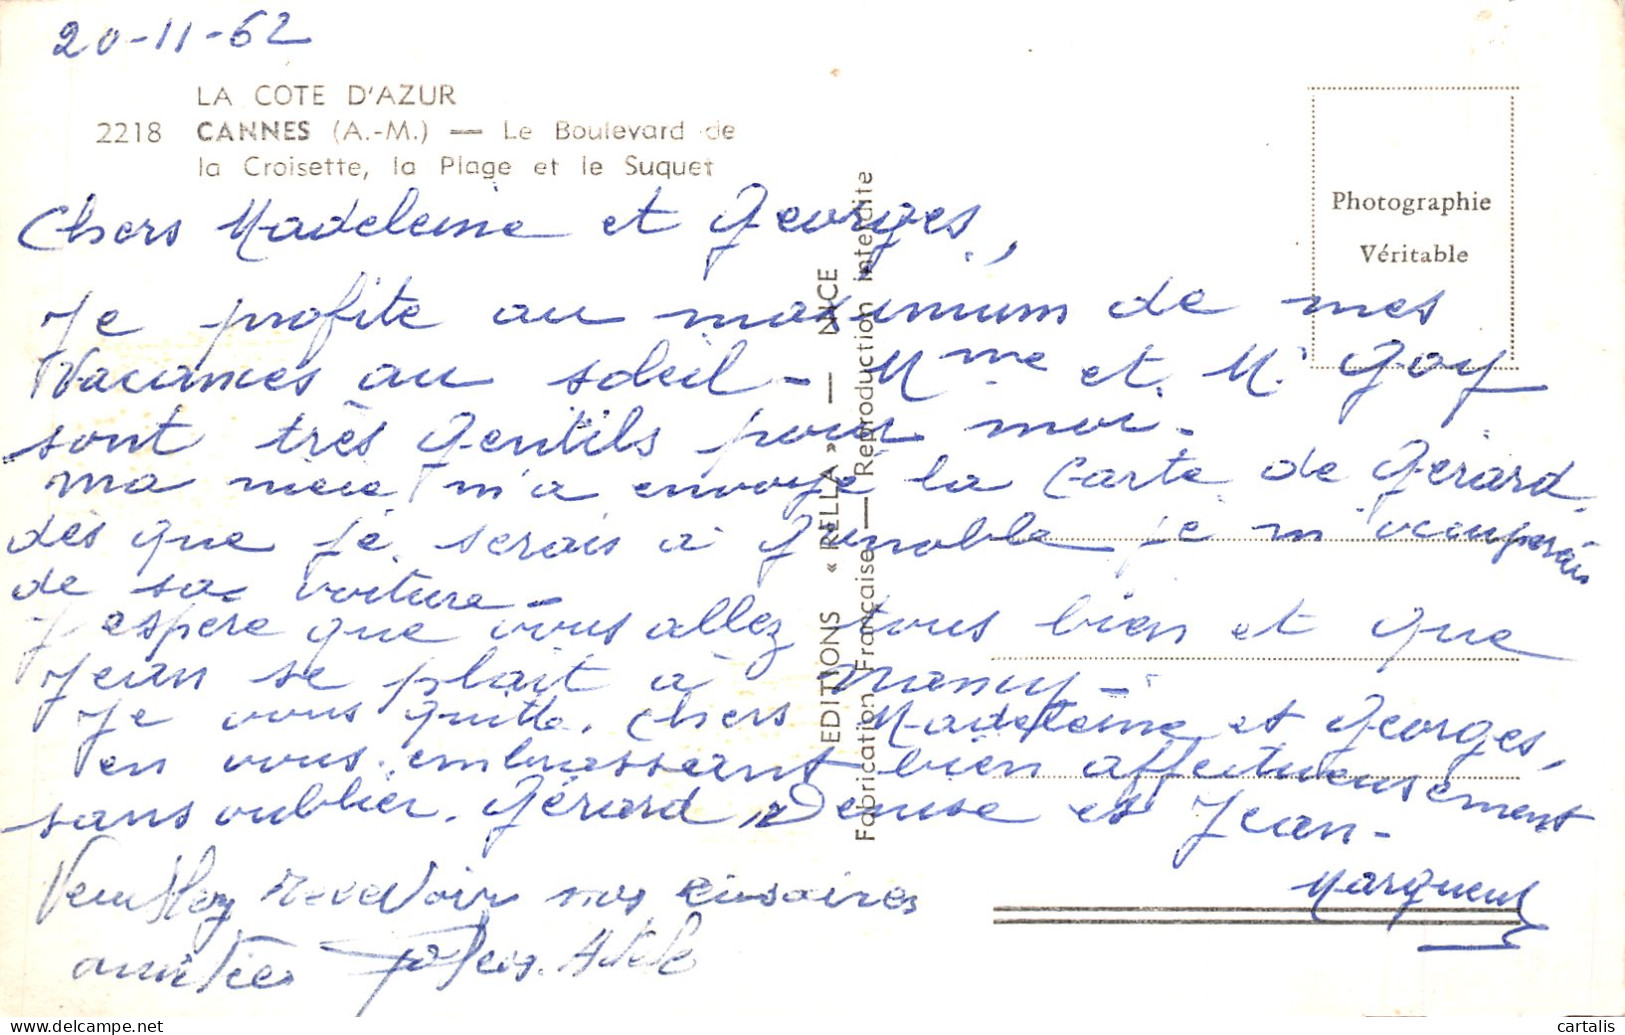 20-11-62
LA COTE D'AZUR
2218 CANNES (A.-M.) — Le Boulevard de
la Croisette, la Plage et le Suquet
Photographie
Véritable
EDITIONS « RELLA » — NICE
Fabrication Française — Reproduction interdite
Chers Madeleine et Georges,
Je profite au maximum de mes
Vacances au soleil - Mme et M. Goy
sont très gentils pour moi.
ma mère m'a envoyé la Carte de Gérard,
dès que je serais à Grenoble je m'occuperais
de sa voiture -
J'espère que vous allez tous bien et que
Jean se plait à
Je vous quitte, Chers Madeleine et Georges,
en vous embrassant bien affectueusement
sans oublier, Gérard, Denise et Jean -
Veuillez recevoir nos
amitiés Adèle
cartalis